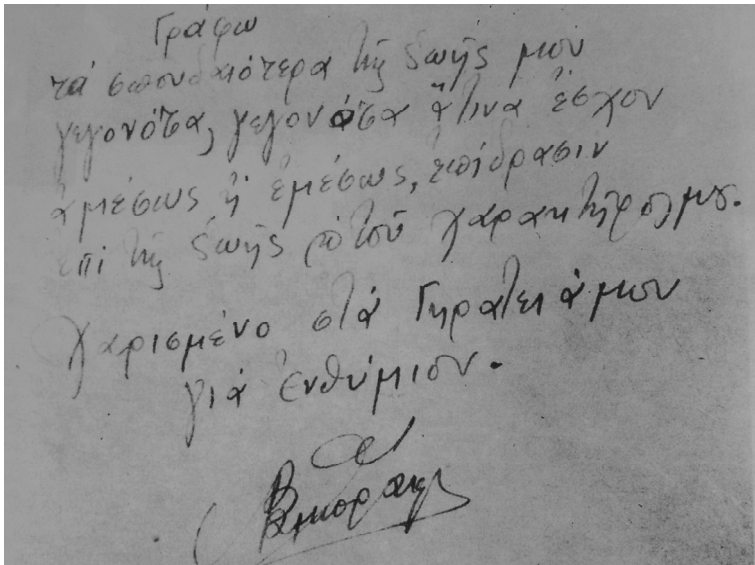 Γράφω
τά σπουδαιότερα τῆς ζωῆς μου
γεγονότα, γεγονότα ἅτινα ἔσχον
ἀμέσως ἤ ἐμέσως, ἐπίδρασιν
ἐπί τῆς ζωῆς τοῦ χαρακτῆρος μου.
χαρισμένο στά Γηρατειά μου
γιά ἐνθύμιον.